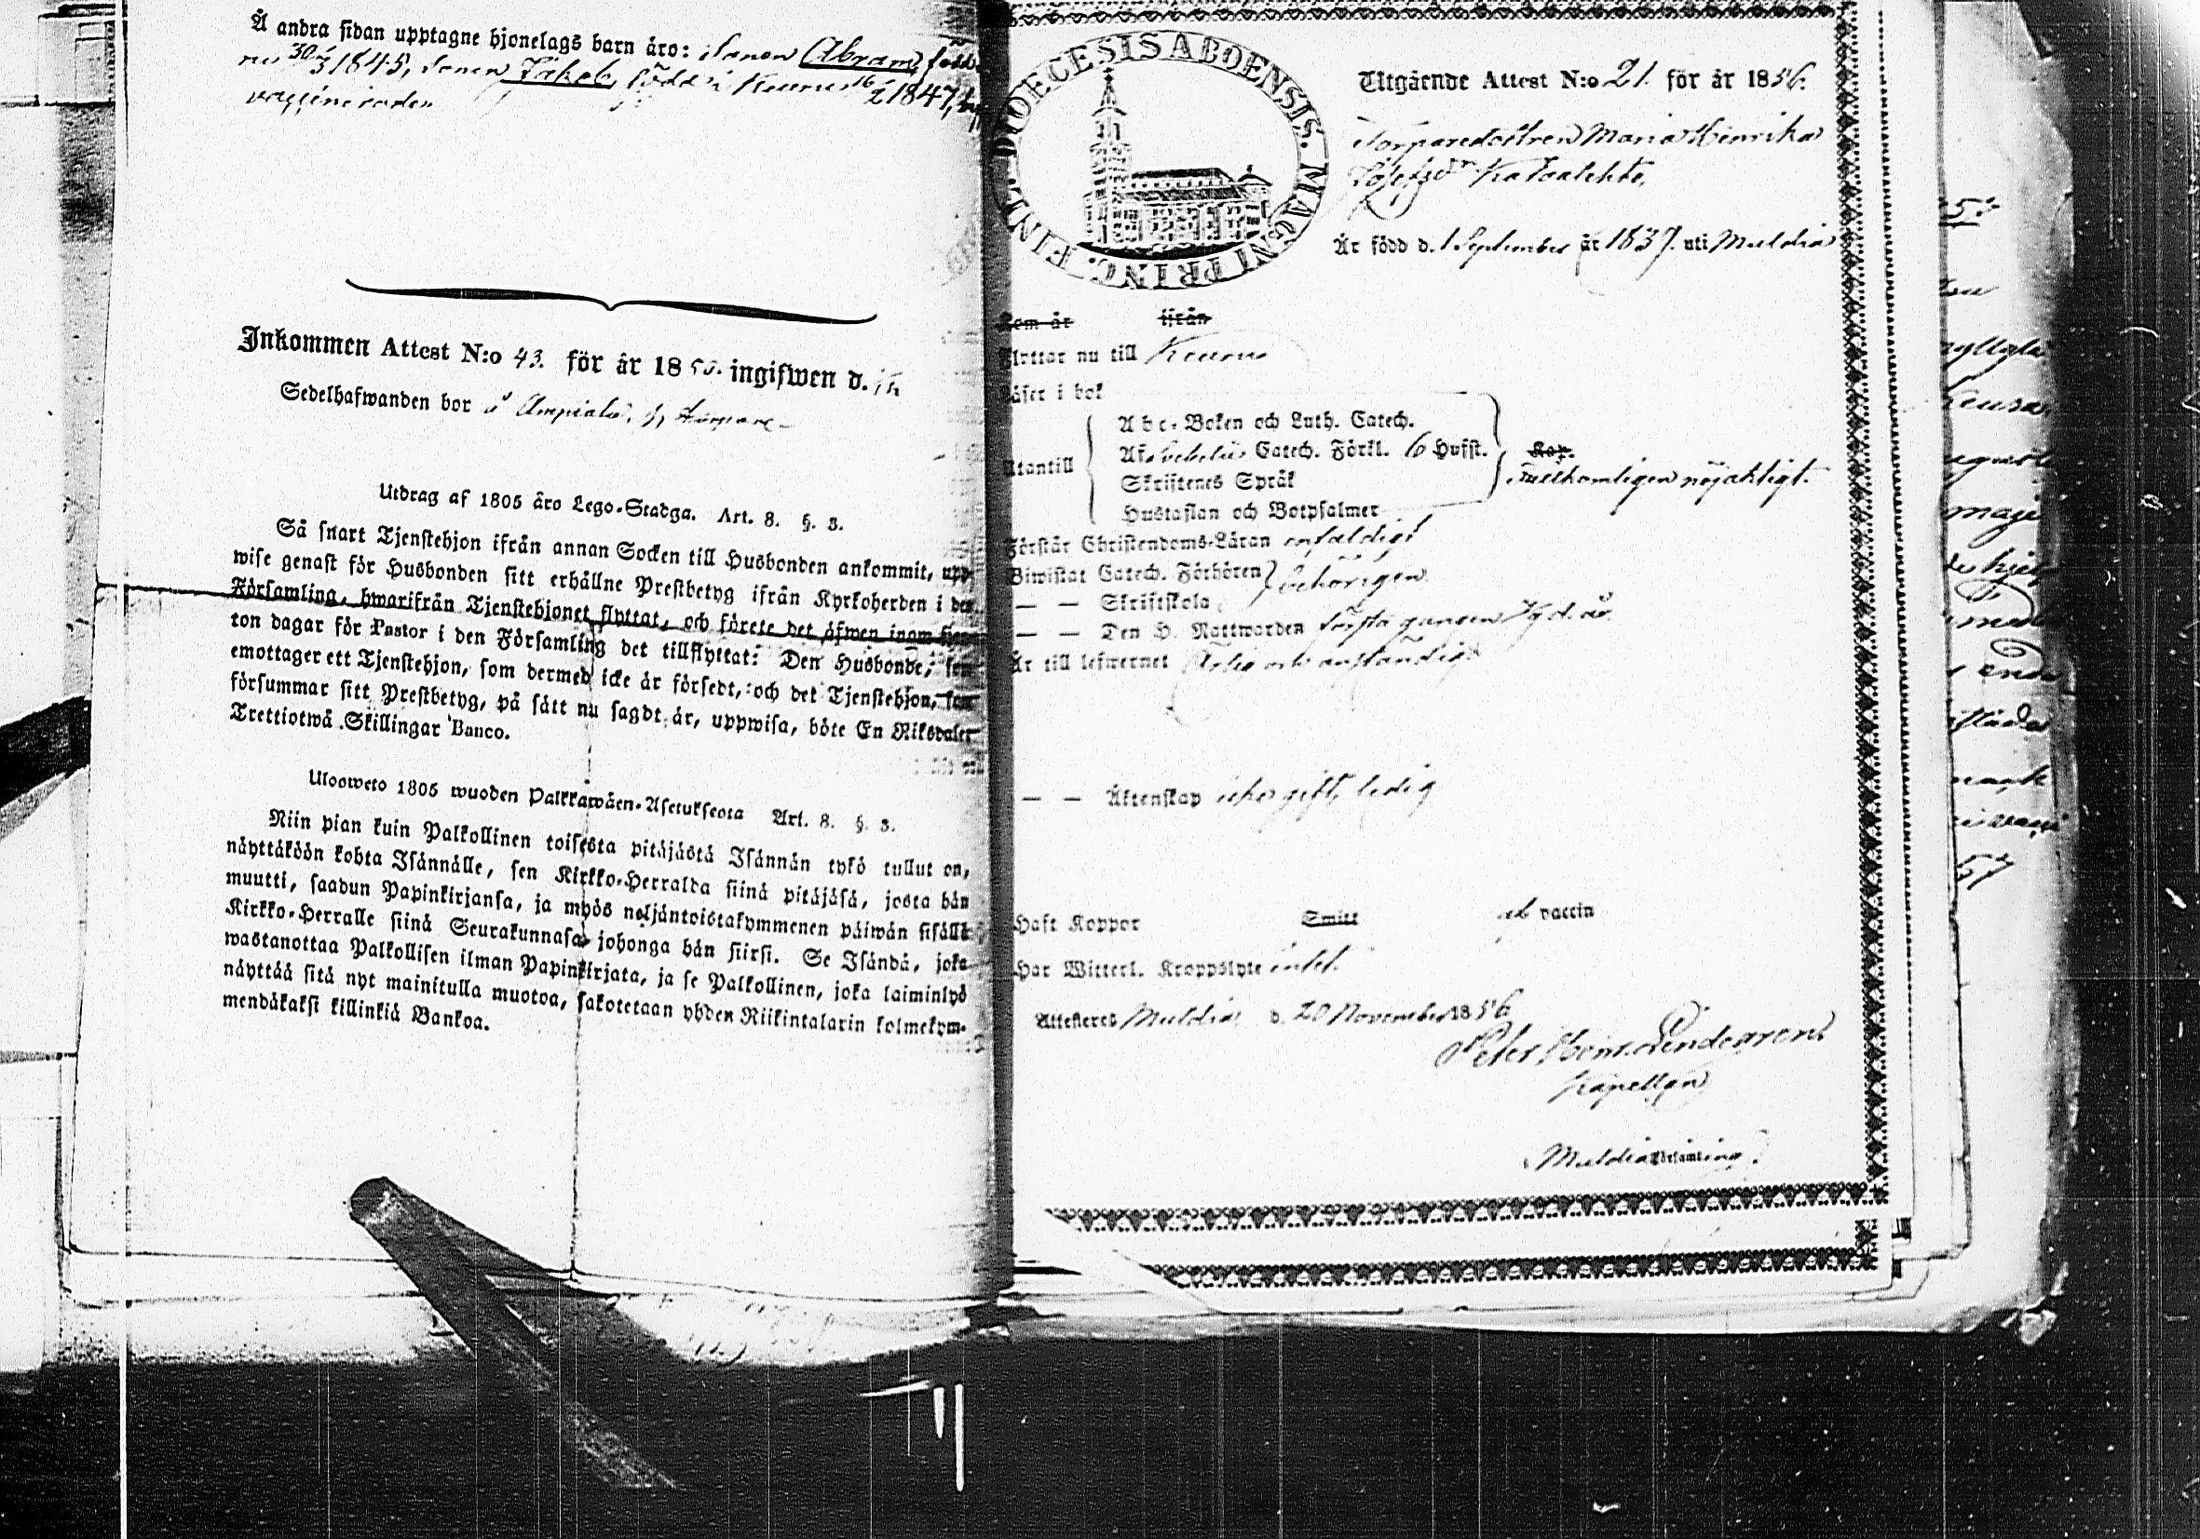 Å andra sidan upptagne hjonelags barn äro: Sonen Abram, född
30/3 1845, Sonen Jakob, född i Keuru 16/2 1847,
vaccinerade.
Inkommen Attest N:o 43. för år 1850. ingifwen d.
Sedelhafwanden bor å Ampiala,
Utdrag af 1805 års Lego-Stadga. Art. 8. §. 3.
Så snart Tjenstehjon ifrån annan Socken till Husbonden ankommit, upp-
wise genast för Husbonden sitt erhållne Prestbetyg ifrån Kyrkoherden i den
Församling, hwarifrån Tjenstehjonet flyttat, och förete det äfwen inom fjor-
ton dagar för Pastor i den Församling det tillflyttat: Den Husbonde, som
emottager ett Tjenstehjon, som dermed icke är försedt, och det Tjenstehjon, som
försummar sitt Prestbetyg, på sätt nu sagdt är, uppwisa, böte En Riksdaler
Trettiotwå Skillingar Banco.
Ulosweto 1805 wuoden Palkkawäen-Asetuksesta Art. 8. §. 3.
Niin pian kuin Palkollinen toisesta pitäjästä Isännän tykö tullut on,
näyttäköön kohta Isännälle, sen Kirkko-Herralda siinä pitäjäsä, josta hän
muutti, saadun Papinkirjansa, ja myös neljäntoistakymmenen päiwän sisällä
Kirkko-Herralle siinä Seurakunnasa johonga hän siirsi. Se Isändä, joka
wastanottaa Palkollisen ilman Papinkirjata, ja se Palkollinen, joka laiminlyö
näyttää sitä nyt mainitulla muotoa, sakotetaan yhden Riikintalarin kolmekym-
mendäkaksi killinkiä Bankoa.
FINL. DIOECESIS ABOENSIS. MAGNI PRINC.
Utgående Attest N:o 21. för år 1856.
Torparedottren Maria Henrika
Josefsdr Kataalehto,
Är född d. 1 September år 1837. uti Muldia
Kom år ifrån
Flyttar nu till Keuru
Läser i bok
Utantill
Abc-Boken och Luth. Catech.
Afsvebelii Catech. Förkl. 6 Hufst.
Skriftenes Språk
Hustaflan och Botpsalmer
Kap.
Fullkomligen nöjaktigt.
Förstår Christendoms-Läran enfaldigt
Biwistat Catech. Förhören behörigen
— — Skriftskola
— — Den H. Nattwarden första gången
Är till lefwernet och anständig
— — Äktenskap icke gift, ledig
Haft Koppor Smitt vaccin
Har Witterl. Kroppslyte intet.
Attesteres Muldia, d. 20 November 1856
Peter Henr. Lindegren
Kapellan
Muldia Församling.